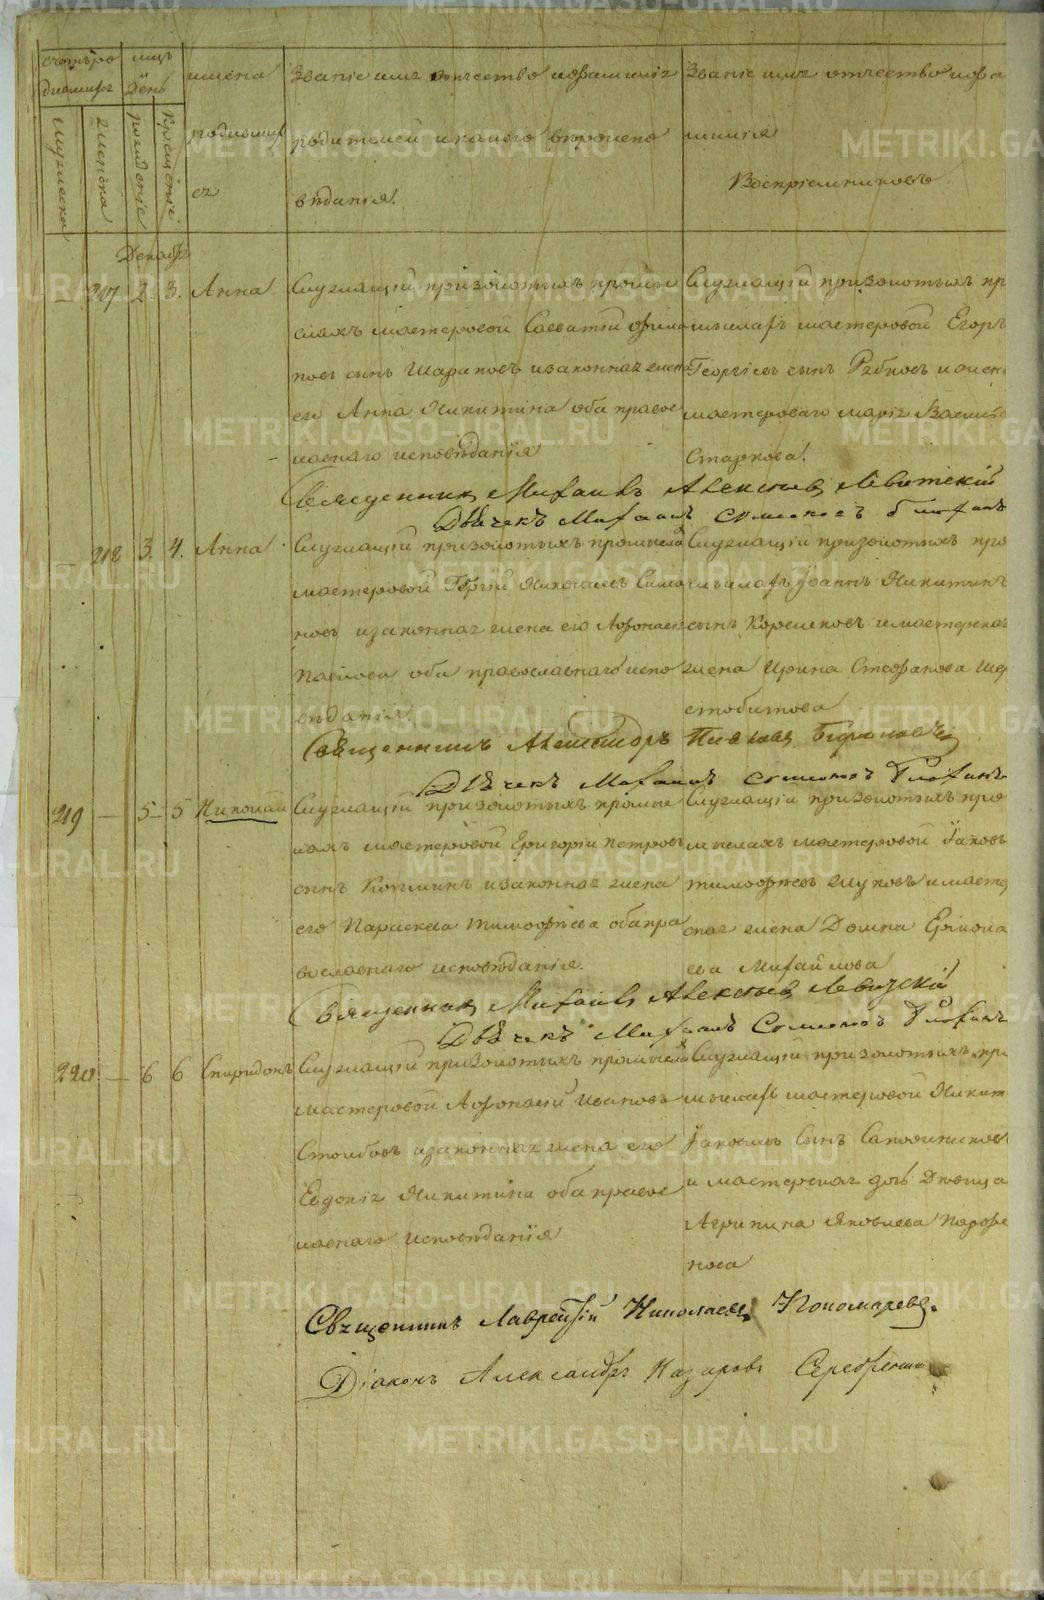 счетъ ро
дившихс
мужеска
женска
мцъ
День
рожденіе
крещеніе
имена
родивших
ся
Званіе имя отчество и фамилія
родителей и какого вѣроиспо
вѣданія.
Званіе имя отчество и фа
милія
Воспріемниковъ
Декабрь
217 2 3. Анна
Служащій при золотыхъ промы
слахъ мастеровой Савватій Филип
повъ сынъ Шараповъ и законная жена
его Анна Никитина оба правос
лавнаго исповѣданія
Служащій при золотыхъ пр
мыслахъ мастеровой Егоръ
Георгіевъ сынъ Рябковъ и жена
мастероваго Марія Василь
Старкова.
Священникъ Михаилъ Алексѣевъ Левитскій
Дьячекъ Михаилъ
218 3. 4. Анна
Служащій при золотыхъ промысла
мастеровой Николаевъ Симо
новъ и законная жена его Афонасія
Павлова оба православнаго испо
вѣданія.
Служащій при золотыхъ про
мыслахъ Іоаннъ Никитинъ
сынъ Корелковъ и мастерская
жена Ирина Стефанова Ше
стобитова
Священникъ Александръ
Дьячекъ Михаилъ
219 — 5 5 Николай
Служащій при золотыхъ промыс
лахъ мастеровой Григорій Петровъ
сынъ и законная жена
его Параскева Тимофѣева оба пра
вославнаго исповѣданія.
Служащій при золотыхъ про
мыслахъ мастеровой Іаковъ
Тимофѣевъ Жуковъ и масте
ская жена Домна Ермола
ева Михайлова
Священникъ Михаилъ Алексѣевъ Левитскій
Дьячекъ Михаилъ
220 — 6 6 Спиридонъ
Служащій при золотыхъ промысла
мастеровой Афонасій Ивановъ
Столбовъ и законная жена его
Евдокія Никитина оба правос
лавнаго исповѣданія
Служащій при золотыхъ пр
мыслахъ мастеровой Никит
Іаковлевъ Сынъ Сапожниковъ
и мастерская дочь Дѣвица
Агрипина Яковлева Парфе
нова
Священникъ Лаврентій Николаевъ Пономаревъ.
Діаконъ Александръ Назаровъ
METRIKI.GASO-URAL.RU